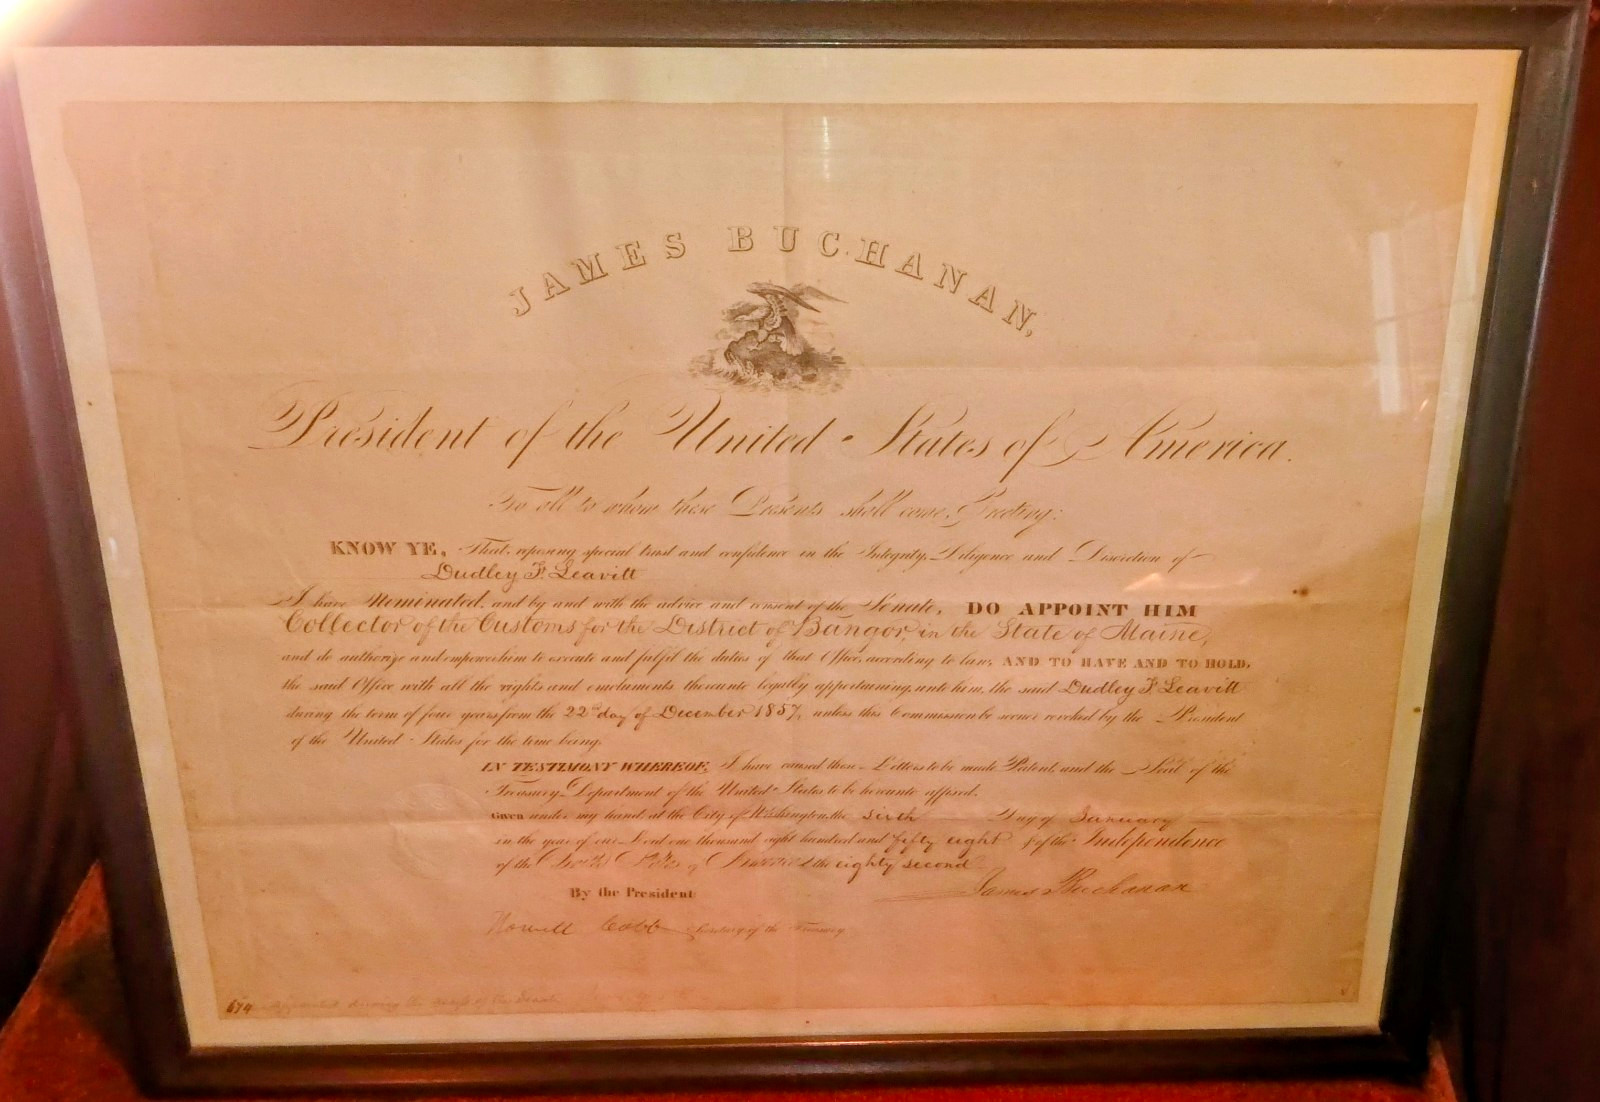 JAMES BUCHANAN,
President of the United States of America.
To all to whom these Presents shall come, Greeting:
KNOW YE, That, reposing special trust and confidence in the Integrity, Diligence and Discretion of
Dudley F. Leavitt
I have Nominated, and by and with the advice and consent of the Senate, DO APPOINT HIM
Collector of the Customs for the District of Bangor, in the State of Maine,
and do authorize and empower him to execute and fulfil the duties of that Office, according to law; AND TO HAVE AND TO HOLD,
the said Office with all the rights and emoluments thereunto legally appertaining, unto him, the said Dudley F. Leavitt
during the term of four years from the 22d day of December 1857, unless this Commission be sooner revoked by the President
of the United States for the time being.
IN TESTIMONY WHEREOF, I have caused these Letters to be made Patent, and the Seal of the
Treasury Department of the United States to be hereunto affixed.
Given under my hand, at the City of Washington, the sixth Day of January
in the year of our Lord one thousand eight hundred and fifty eight & of the Independence
of the United States of America the eighty second.
By the President James Buchanan
Howell Cobb Secretary of the Treasury
674 appointed during the recess of the Senate